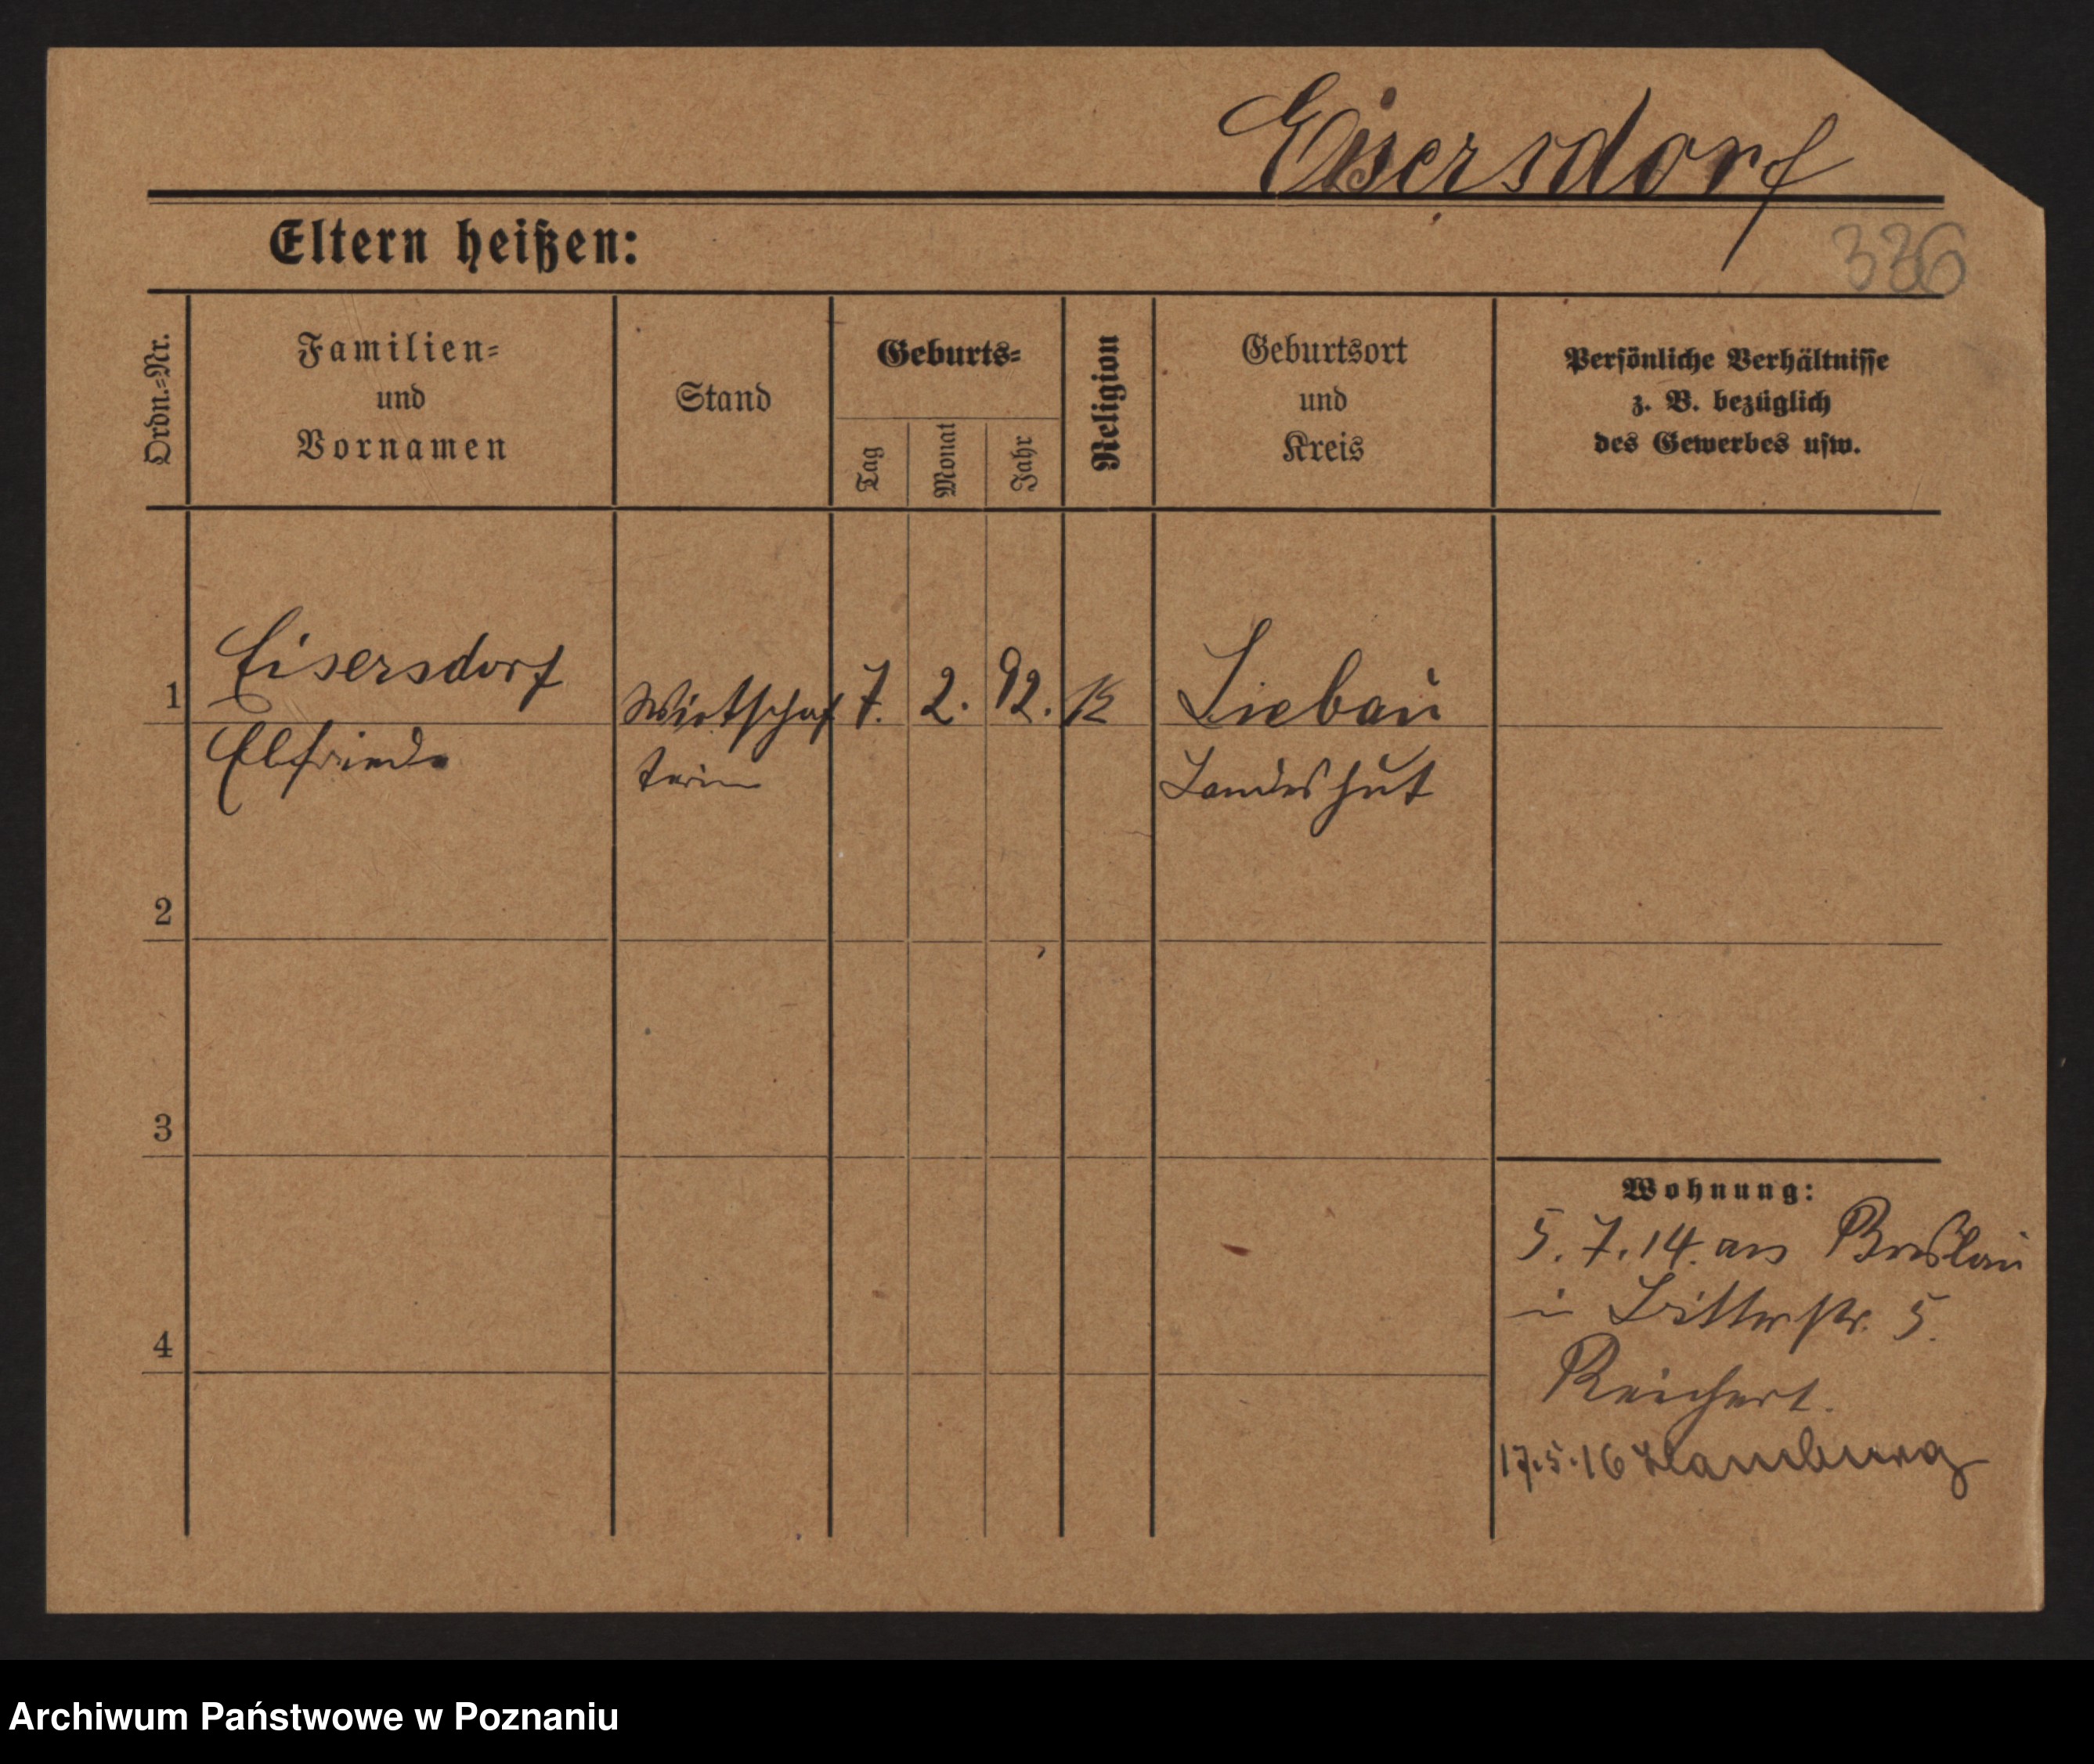 Eisersdorf
Eltern heißen:
336
Ordn.-Nr.
Familien-
und
Vornamen
Stand
Geburts-
Tag
Monat
Jahr
Religion
Geburtsort
und
Kreis
Persönliche Verhältnisse
z. B. bezüglich
des Gewerbes usw.
1
Eisersdorf
Elfriede
Wirtschaf
terin
7.
2.
92.
K
Liebau
Landeshut
2
3
4
Wohnung:
5. 7. 14. aus Breslau
in Ritterstr. 5.
Reichert.
17.5.16 Hamburg
Archiwum Państwowe w Poznaniu